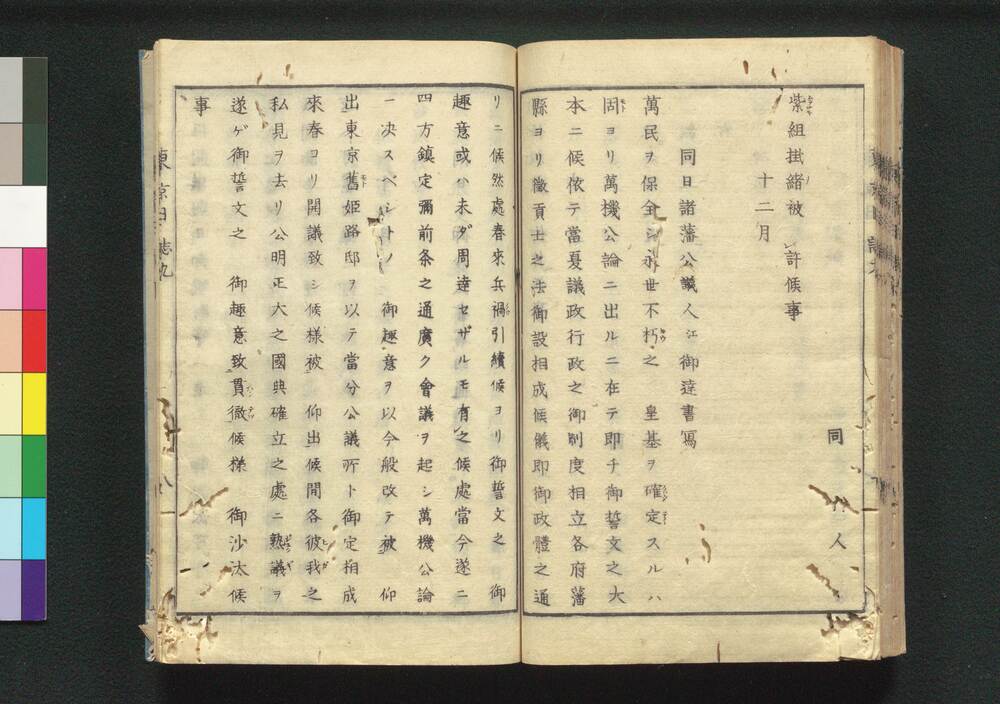 同 人
紫組掛緒被 許候事
十二月
同日諸藩公議人江御達書寫
萬民ヲ保全シ永世不朽之 皇基ヲ確定スルハ
固ヨリ萬機公論ニ出ルニ在テ即チ御誓文之大
本ニ候依テ當夏議政行政之御制度相立各府藩
縣ヨリ徵貢士之法御設相成候儀即御政體之通
リニ候然處春來兵禍引續候ヨリ御誓文之 御
趣意或ハ未ダ周達セザルモ有之候處當今遂ニ
四方鎮定彌前条之通廣ク會議ヲ起シ萬機公論
一決スベシトノ 御趣意ヲ以今般改テ被 仰
出東京舊姫路邸ヲ以テ當分公議所ト御定相成
來春ヨリ開議致シ候様被 仰出候間各彼我之
私見ヲ去リ公明正大之國典確立之處ニ熟議ヲ
遂ゲ御誓文之 御趣意致貫徹候様 御沙汰候
事
東京日誌九